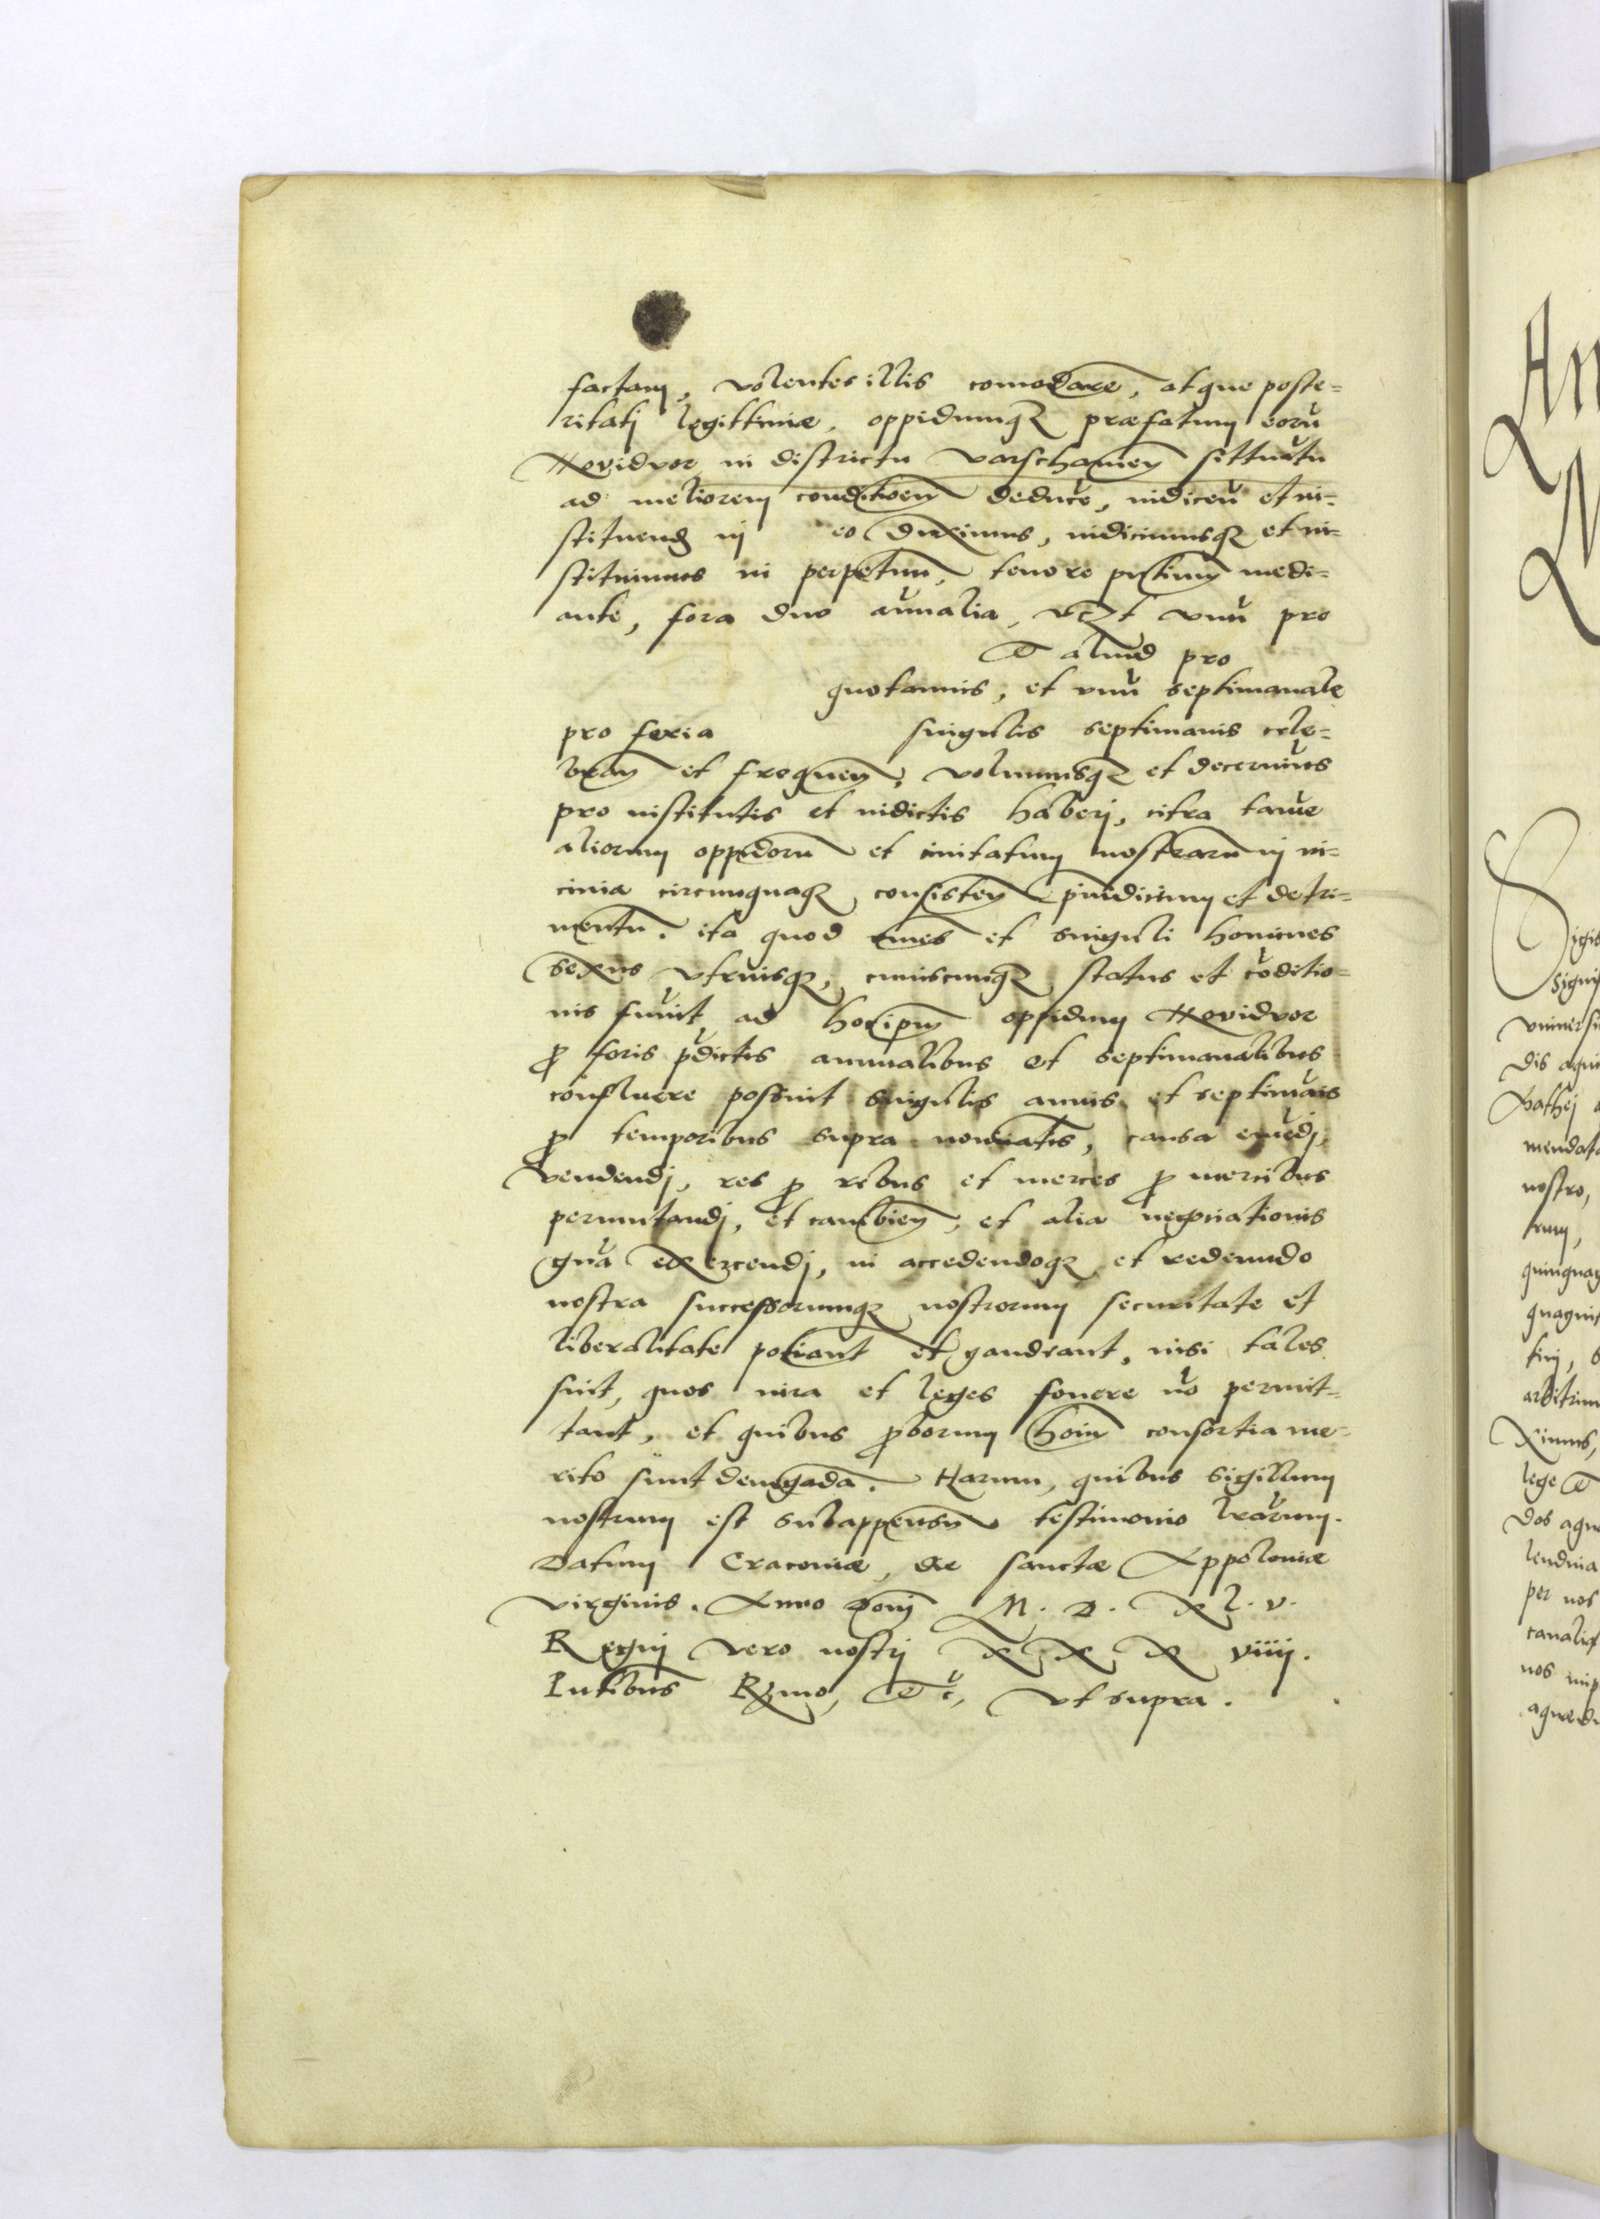 factam, volentes illis comodare, atque poste=
ritati legittimæ, oppidumq3 præfatum eorū
Novidvor in districtu Varschavien situatū
ad meliorem conditioem deduce, indicen et in=
stituend in eo duximus, indicimusq3 et in=
stituimus in perpetuum, tenore pntium medi=
ante, fora duo annalia, vczt vnū pro
et aliud pro
quotannis, et vnū septimanale
pro feria singulis septimanis cele=
bran et frequen, volumusq3 et decernims
pro institutis et indictis haberj, citra tame
aliorum oppidorū et ciuitatum nostrarū in vi=
cinia circumquaq3 consisten preiudicium et detri=
mentū. ita quod omes et singuli homines
sexus vtriusq3, cuiuscumq3 status et coditio=
nis fuint ad hoc ipm oppidum Novidvor
p foris pdictis annualibus et septimanalibus
confluere possint singulis annis et septimais
p temporibus supra nomiatis, causa emedj,
vendendj, res p rebus et merces p mercibus
permutandj, et cambien, et alia negociationis
gna exercendj, in accedendoq3 et redeundo
nostra successorumq3 nostrorum securitate et
liberalitate potiant et gaudeant, nisi tales
sint, quos iura et leges fouere no permit=
tant, et quibus pborum hoim consortia me=
rito sunt denegada. Harum, quibus sigillum
nostrum est subappensm testimonio lrarum.
Datum Cracoviæ, die sanctæ Appoloniæ
virginis. Anno domj M. D. XL.V.
Regnj vero nostrj XXXviiij.
Pntibus Rzmo, et c, vt supra.